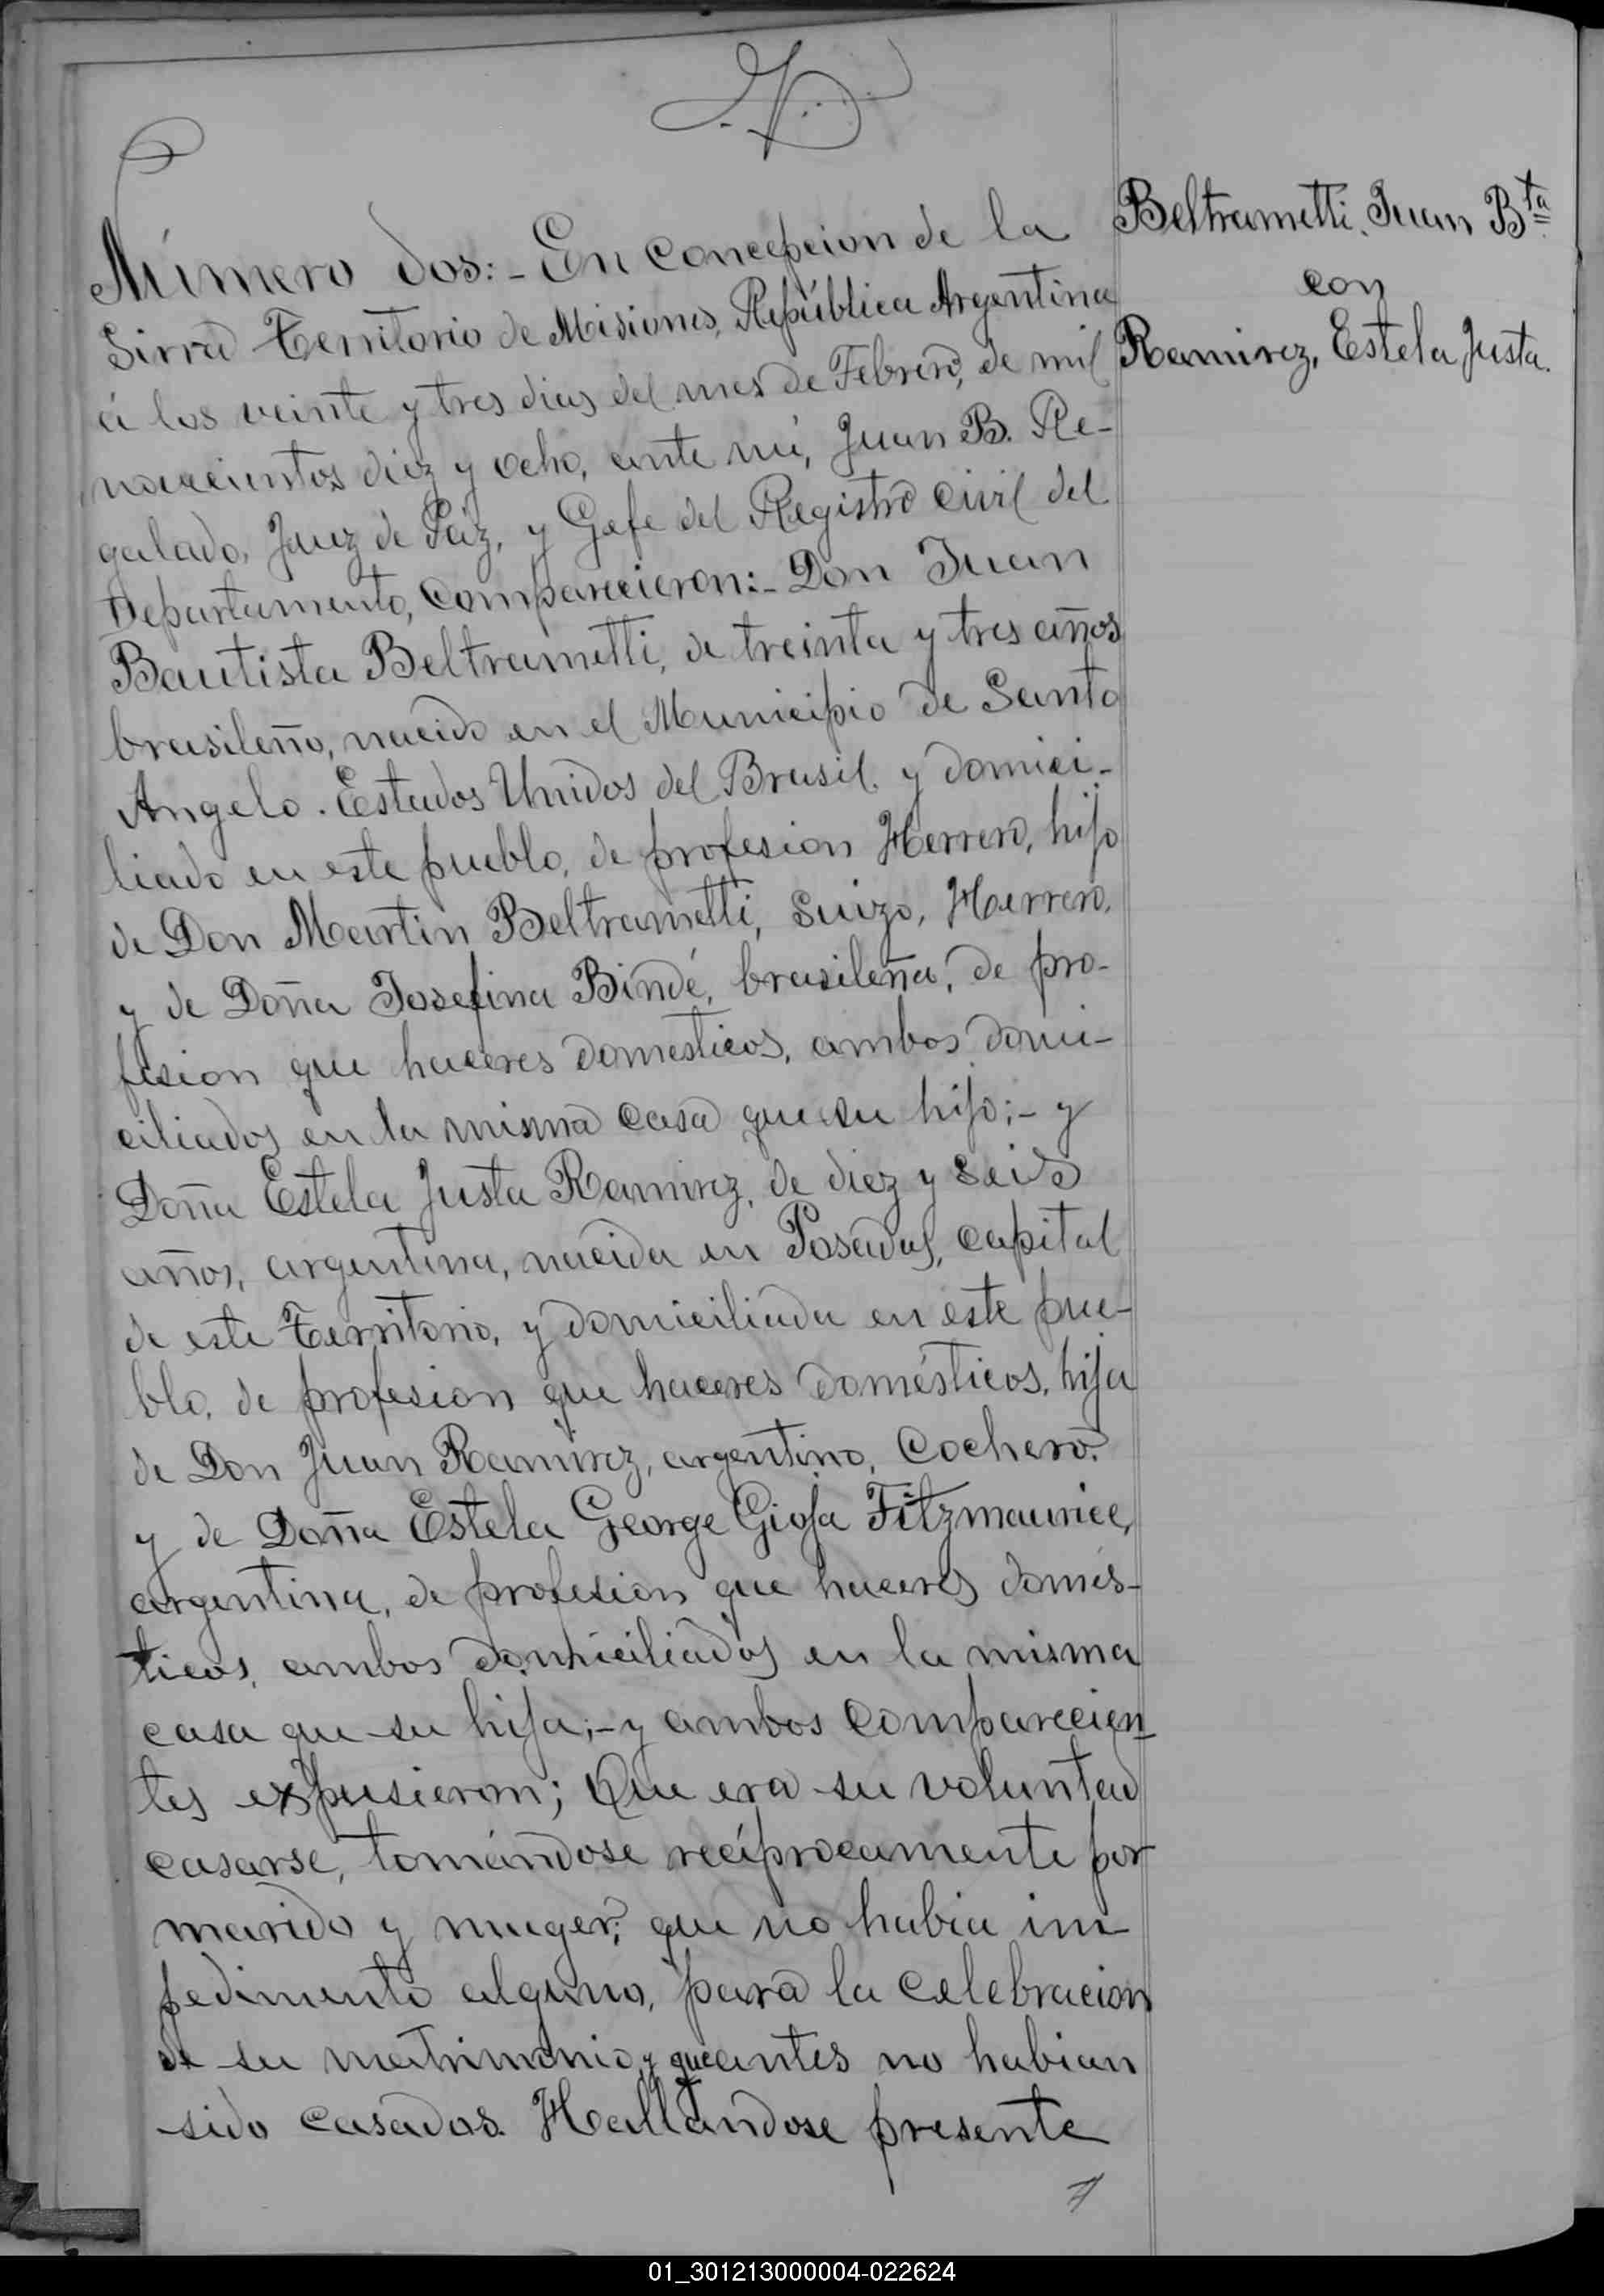 Número dos:- En Concepcion de la
Sirra Territorio de Misiones, República Argentina
á los veinte y tres dias del mes de Febrero, de mil
novecientos diez y ocho, ante mi, Juan B. Re-
galado, Juez de Páz, y Gefe del Registro Civil del
Departamento, Comparecieron:- Don Juan
Bautista Beltrametti, de treinta y tres años
brasileño, nacido en el Municipio de Santo
Angelo. Estados Unidos del Brasil. y domici-
liado en este pueblo, de profesion Herrero, hijo
de Don Martin Beltrametti, Suizo, Herrero,
y de Doña Josefina Bindé, brasileña, de pro-
fesion que haceres domesticos, ambos domi-
ciliados en la misma casa que su hijo;- y
Doña Estela Justa Ramirez, de diez y seis
años, argentina, nacida en Posadas, capital
de este Territorio, y domiciliada en este pue-
blo, de profesion que haceres domésticos, hija
de Don Juan Ramirez, argentino, Cochero,
y de Doña Estela George Giosa Fitzmaurice,
argentina, de profesion que haceres domés-
ticos, ambos domiciliados en la misma
casa que su hija;- y ambos comparecien-
tes expusieron; Que era su voluntad
casarse, tomándose recíprocamente por
marido y muger; que no habia im-
pedimento alguno, para la celebracion
de su matrimonio, y que antes no habian
sido casados. Hallandose presente
Beltrametti. Juan Bta
con
Ramirez, Estela Justa.
01_301213000004-022624